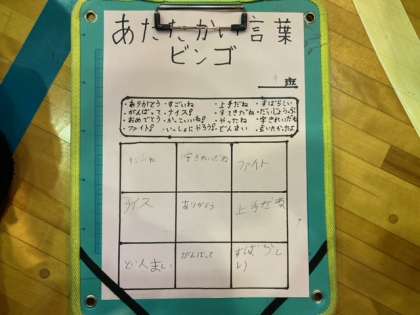 あたたかい言葉
ビンゴ
班
・ありがとう ・すごいね ・上手だね ・すばらしい
・がんばって ・ナイス! ・すてきだね ・だいじょうぶ?
・おめでとう ・かっこいい! ・やったね ・字きれいだね
・ファイト! ・いっしょにやろう! ・どんまい
字きれいだね ファイト
ナイス ありがとう 上手だね
どんまい がんばって すばらしい